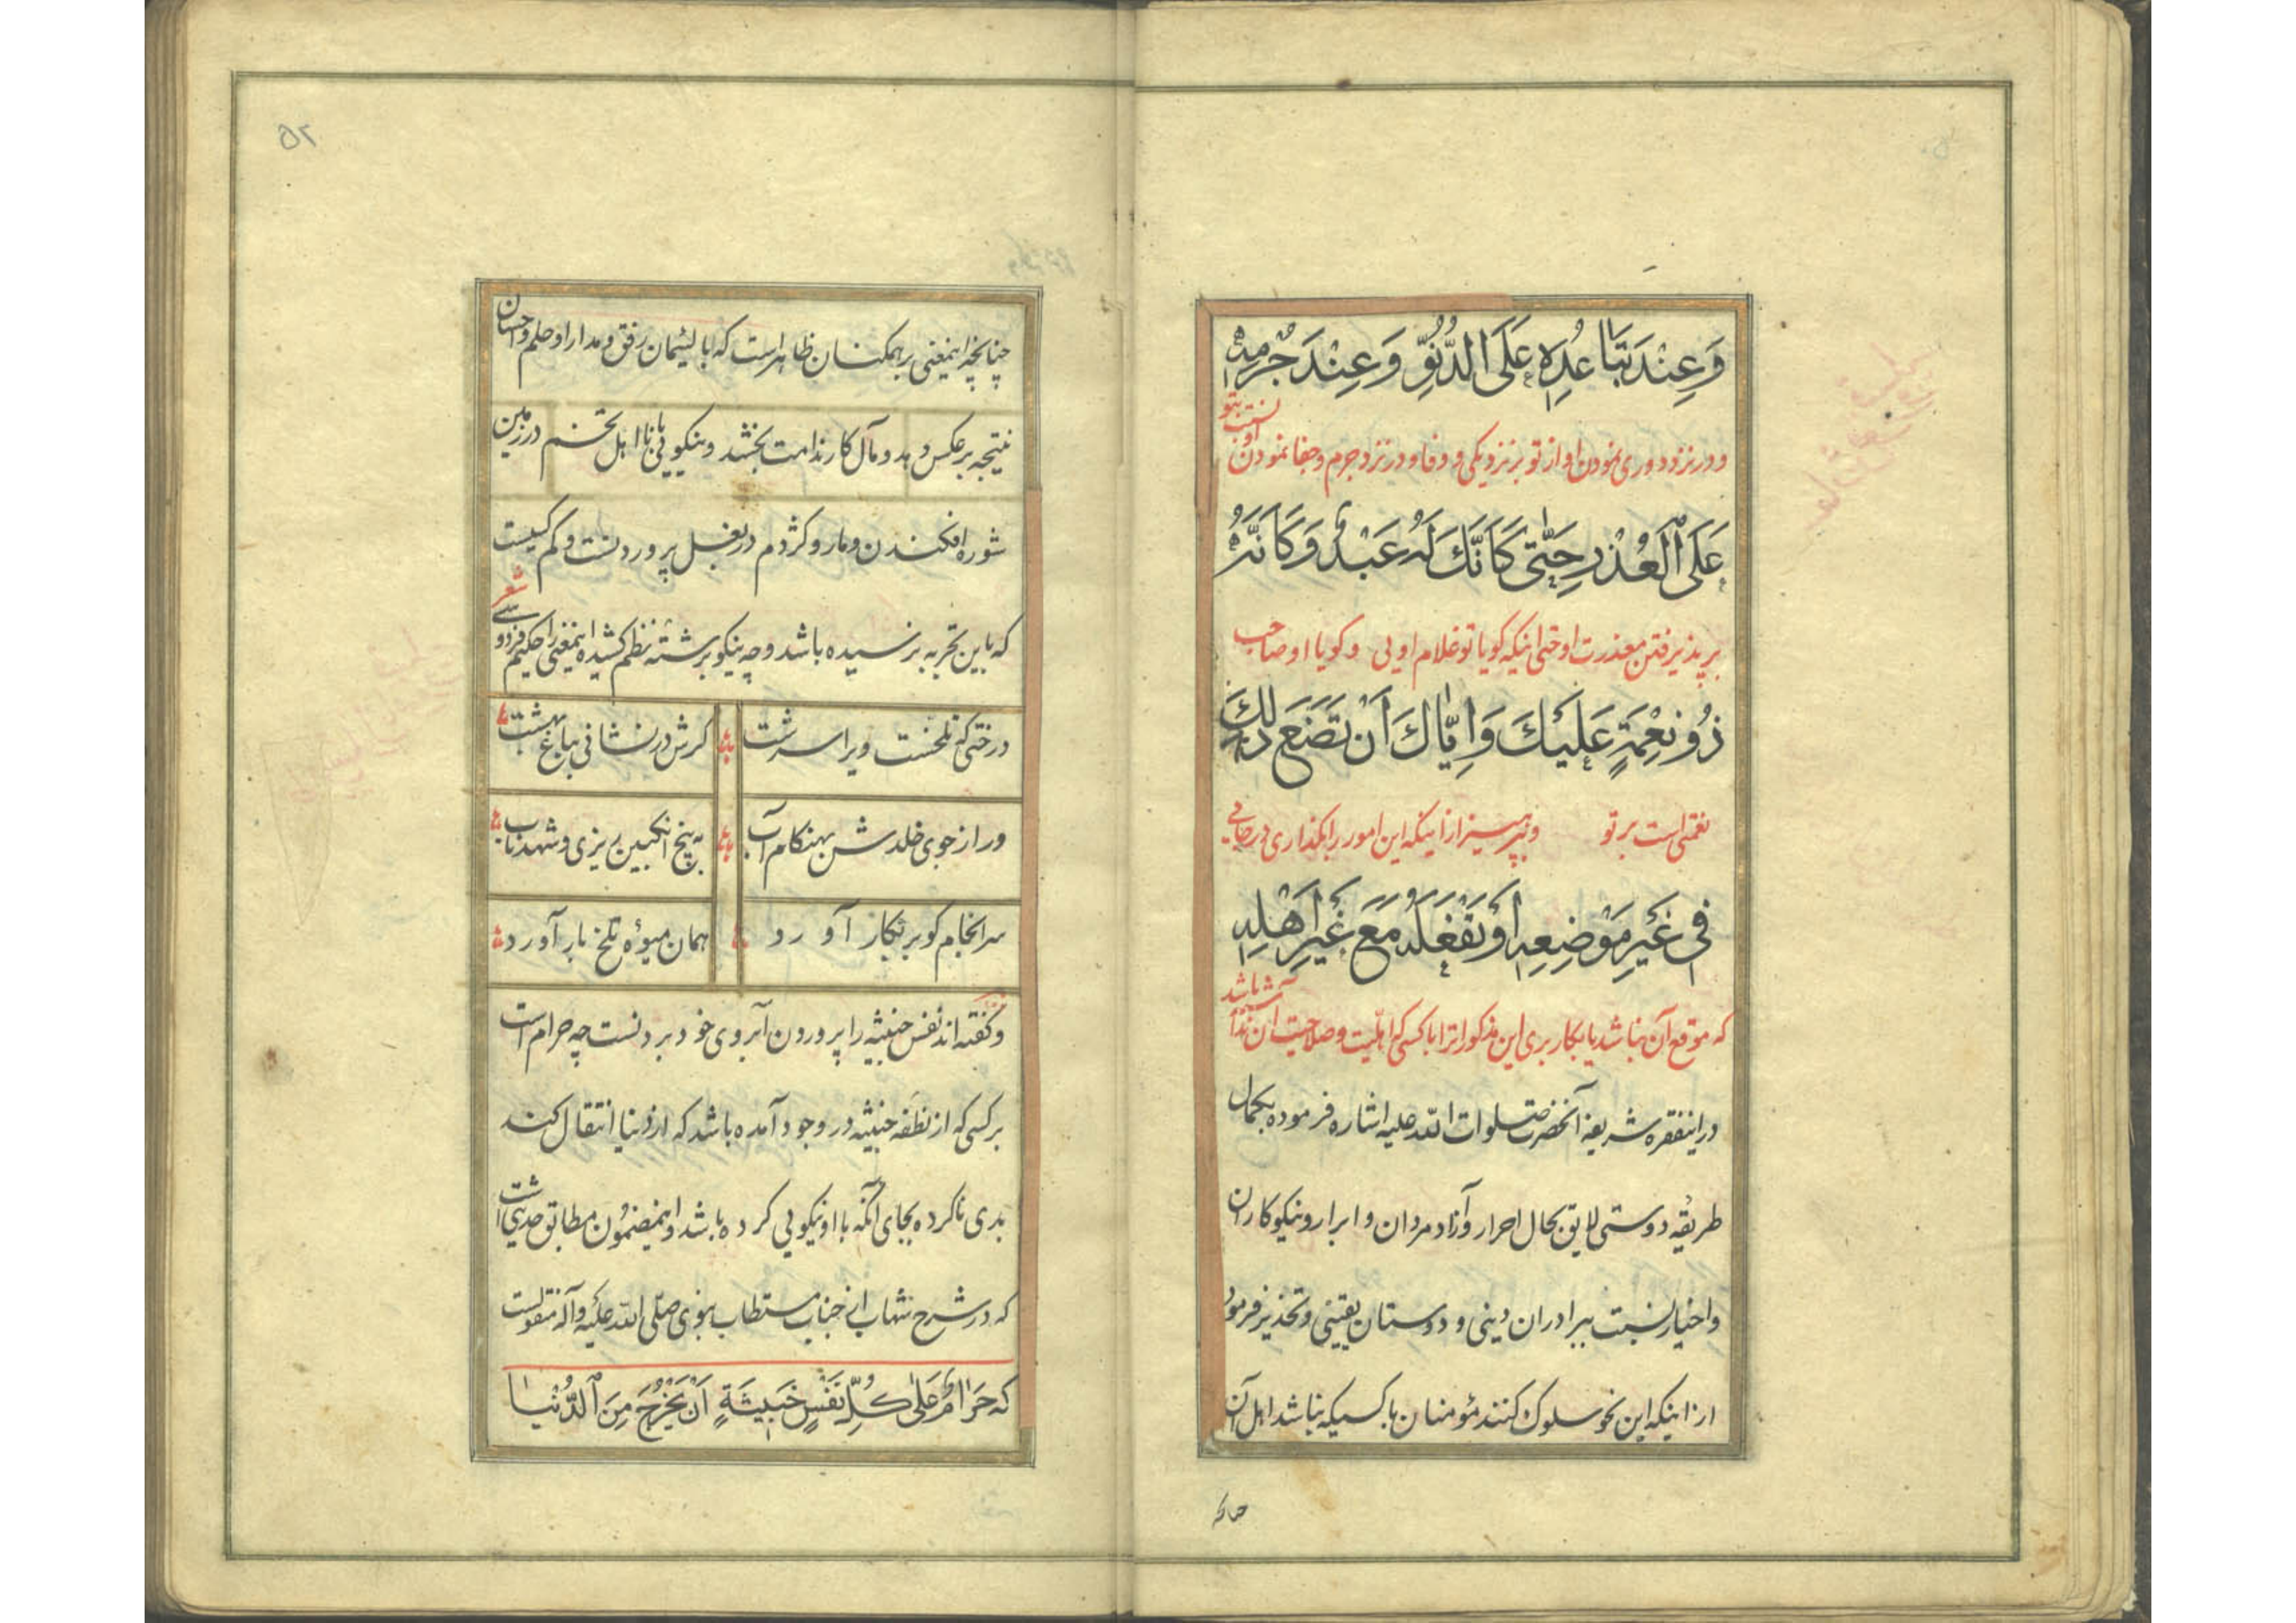 وَعِنْدَ تَبَاعُدِهِ عَلَى الدُّنُوِّ وَعِنْدَ جُرْمِهِ
و در نزد دوری نمودن او از تو بر نزدیکی و وفا و در نزد جرم و جفا نمودن او نسبت بتو
عَلَى الْعُذْرِ حَتّٰى كَاَنَّكَ لَهُ عَبْدٌ وَكَاَنَّهُ
بر پذیرفتن معذرت او حتی اینکه کویا تو غلام اویی و کویا او صاحب
ذُو نِعْمَةٍ عَلَيْكَ وَاِيَّاكَ اَنْ تَضَعَ ذٰلِكَ
نعمتی است بر تو و بپرهیز از اینکه این امور را بکذاری در جایی
فِي غَيْرِ مَوْضِعِهِ اَوْ تَفْعَلَهُ مَعَ غَيْرِ اَهْلِهِ
که موقع آن نباشد یا بکار بری این مذکورات را با کسی که اهلیت و صلاحیت آن نداشته باشد
در اینفقره شریفه آنحضرت صلوات الله علیه اشاره فرموده بجمال
طریقه دوستی لایق بحال احرار و آزاد مردان و ابرار و نیکوکاران
و اخیار نسبت ببرادران دینی و دوستان یقینی و تحذیر فرموده
از اینکه این نحو سلوک کنند مؤمنان با کسیکه نباشد اهل آن
۵۲
چنانچه اینمعنی بر همکنان ظاهر است که با لئیمان رفق و مدارا و حلم و احسان
نتیجه بر عکس دهد و مآل کار ندامت بخشد و نیکویی با نااهل تخم در زمین
شوره افکندن و مار و کژدم در بغل پروردنست و کم کسیست
که باین تجربه نرسیده باشد و چه نیکو برشته نظم کشیده اینمعنی را حکیم فردوسی شعر
درختی که تلخست ویرا سرشت کرش در نشانی بباغ بهشت
ور از جوی خلدش بهنکام آب به بیخ انکبین ریزی و شهد ناب
سرانجام کوهر بکار آورد همان میوۀ تلخ بار آورد
و کفته‌اند نفس خبیثه را پروردن آبروی خود بردنست چه حرام است
بر کسی که از نطفه خبیثه در وجود آمده باشد که از دنیا انتقال کند
بدی ناکرده بجای آنکه با او نیکویی کرده باشد و اینمضمون مطابق حدیثی است
که در شرح شهاب از جناب مستطاب نبوی صلی الله علیه وآله منقولست
که حَرَامٌ عَلٰى كُلِّ نَفْسٍ خَبِيثَةٍ اَنْ يَخْرُجَ مِنَ الدُّنْيَا